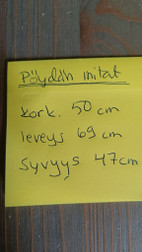 Pöydän mitat
kork. 50 cm
leveys 69 cm
syvyys 47 cm